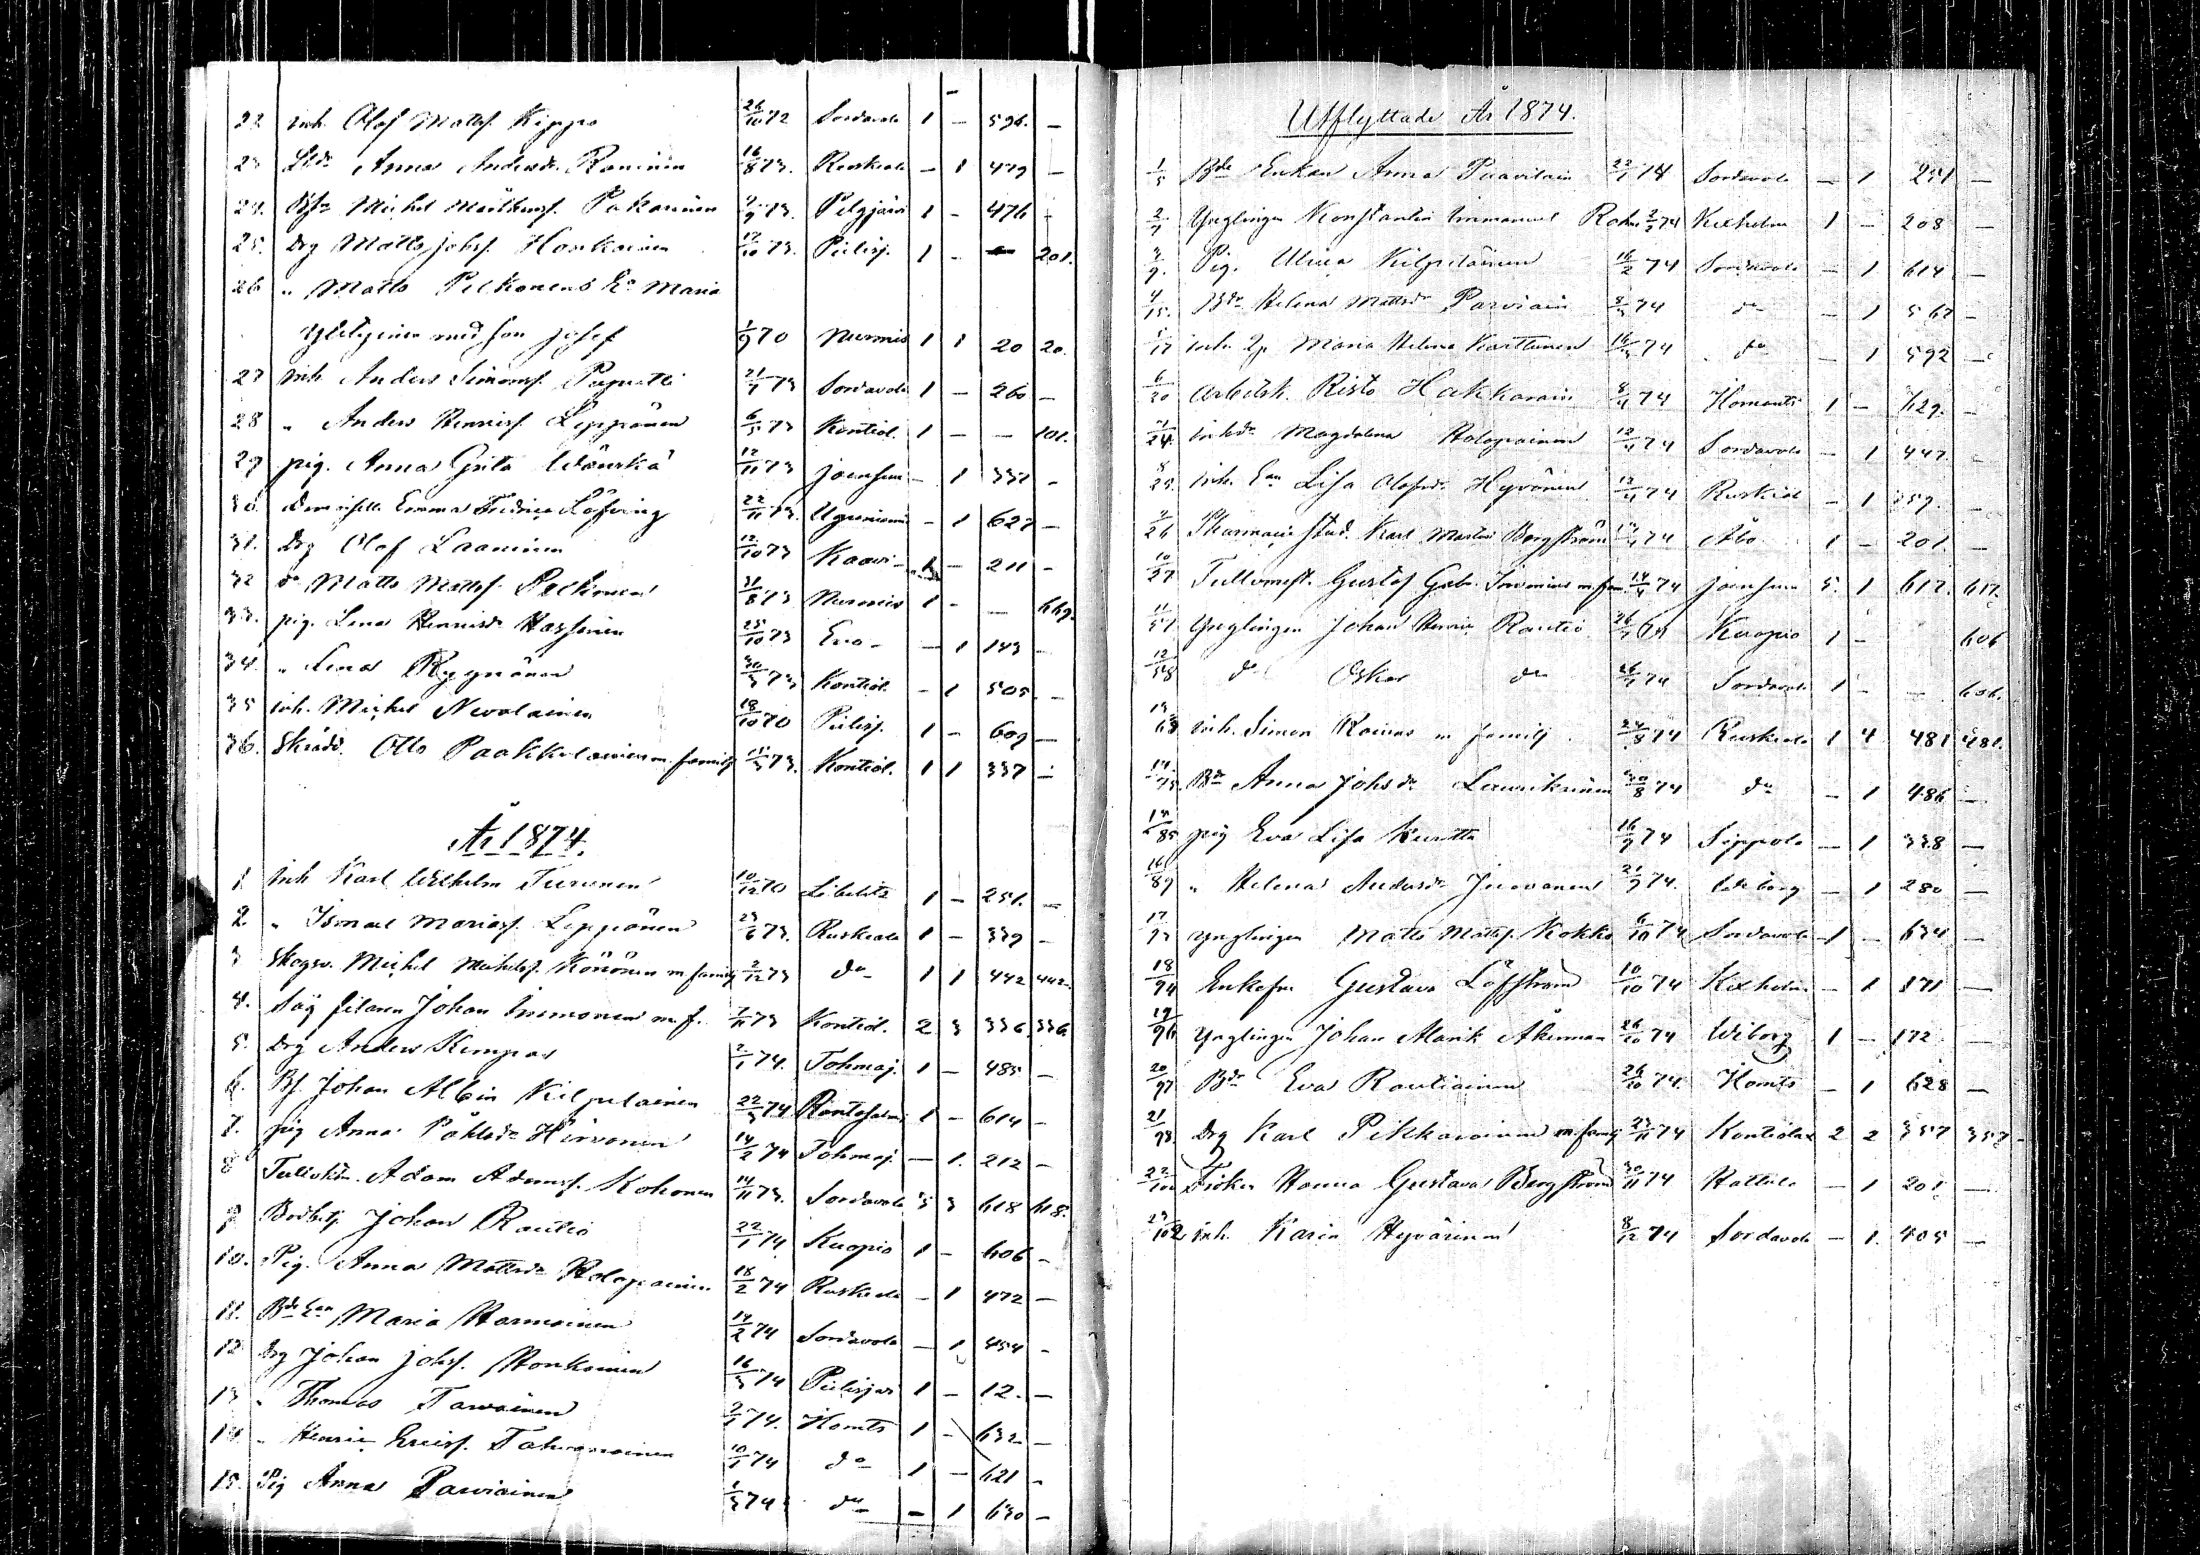 22 inh. Olof Mattss. Kippo 26/10 72 Sordavala 1 – 596. –
23 Anna Andersdr Raninen 16/8 73. Ruskeala – 1 479 –
24. Michel Pakarinen 9/9 73. Pelgjärvi 1 – 476 –
25. Drg Matts Johss. Honkainen 17/10 73. Pielisj. 1 – 201.
26 " Matts Pelkonens Ea Maria
med son Josef 1/9 70 Nurmis 1 1 20 20.
27 inh. Anders Simonss. 21/7 73 Sordavala 1 – 260 –
28 " Anders Henrikss. Leppänen 6/5 73 Kontiol. 1 – – 101.
29 pig. Anna Greta Wänskä 12/11 73 Joensuu – 1 337 –
30. Demoiselle Emma Fredrica Löfving 22/11 73. Uguniemi – 1 627 –
31. Drg Olof Laaninen 12/10 73 Kaavi 1 – 211 –
32 do Matts Mattss. Pelkonen 31/8 73 Nurmis 1 – – 669.
33. pig. Lena Henriksdr Hassinen 25/10 73 Eno – – 1 143 –
34. " Lena Ryynänen 30/3 73 Kontiol. – 1 505. –
35 inh. Michel Nevalainen 18/10 70 Pielisj. 1 – 609 –
36. Skrädd. Otto Paakkolainen m. familj 11/3 73. Kontiol. 1 1 337 –
År 1874.
1 inh Karl Wilhelm Turunen 10/12 70 Libelits 1 – 251. –
2. " Ismael Mariass. Leppänen 23/6 73. Ruskeala 1 – 339 –
3 Skogsv. Michel Michelss. Könönen m familj 2/12 73 do 1 1 442 442.
4. Johan Immonen m. f. 7/11 73 Kontiol. 2 3 336 336
5. Drg Anders Kempas 2/1 74. Tohmaj. 1 – 485 –
6. Bs. Johan Albin Kilpelainen 22/3 74 Rantasalmi 1 – 614 –
7. pig Anna Påhlsdr Hirvonen 14/2 74 Tohmaj – 1. 212 –
8 Adam Adamss. Kohonen 14/11 73. Sordavala 5 3 618 618.
9 Johan Rautio 22/1 74 Kuopio 1 – 606 –
10. Pig. Anna Mattsdr Holopainen 18/2 74 Ruskeala – 1 472 –
11. Bde Ean Maria Harmoinen 14/2 74 Sordavala – 1 454 –
12 Drg Johan Johss. Honkainen 16/3 74 Pielisjärvi 1 – 12. –
13 " Thomas Tarvainen 2/1 74. Ilomts 1 – 632 –
14. " Henric Ericss. Tahvanainen 10/1 74 do 1 – 621 –
15. Pig Anna Parviainen 1/3 74 do – 1 630 –
Utflyttade År 1874.
1/5 Bde Enkan Anna Paavilain 22/1 74 Sordavala – 1 –
2/7 Ynglingen Konstantin Immanuel 2/3 74 Kexholm 1 – 208 –
3/9. Pig. Ulrica Kilpeläinen 16/2 74 Sordavala – 1 614 –
4/15. Bdr Helena Mattsdr Parviain 8/3 74 do – 1 562 –
5/17 inh. Maria Helena Karttunen 16/3 74 do – 1 592 –
6/20 Arbetsk. Risto Hakkarain 8/4 74 Ilomants 1 – 629. –
7/24 inhdr Magdalena Holopainen 12/4 74 Sordavala – 1 447. –
8/25. inh. Ean Lisa Olofsdr Hyvönen 12/4 74 Ruskeal – 1 359. –
9/26 Pharmacie Stud. Karl Martin Bergström 74 Åbo 1 – 201. –
10/27 Gustaf Gabr. m. fam 14/4 74 Joensuu 5. 1 617. 617.
11/57 Ynglingen Johan Henric Rautio Kuopio 1 – 606
12/58 do Oskar do 26/7 74 Sordavala 1 – – 606.
13/68 inh. Simon Roinas m familj 24/8 74 Ruskeala 1 4 481 481.
14/75. Bdr Anna Johsdr Laurikainen 30/8 74 do – 1 486 –
15/85 pig Eva Lisa Kuritta 16/9 74 Sippola – 1 338 –
16/89 " Helena Andersdr Juvonen 21/9 74. – 1 280 –
17/93 Ynglingen Matts Mattss. Kokko 6/10 74 Sordavala 1 – 634 –
18/94 Enkefru Gustava Löfström 10/10 74 Kexholm – 1 171 –
19/96 Ynglingen Johan Alarik Åkerman 26/10 74 Wiborg 1 – 172 –
20/97 Bdr Eva Rautiainen 26/10 74. Ilomts – 1 628 –
21/98 Drg Karl Pikkarainen m familj 23/11 74 Kontiolax 2 2 357 357 –
22/100 Fröken Hanna Gustava Bergström 30/11 74 Hattula – 1 201 –
23/102 inh. Karin Hyvärinen 8/12 74 Sordavala – 1. 405 –